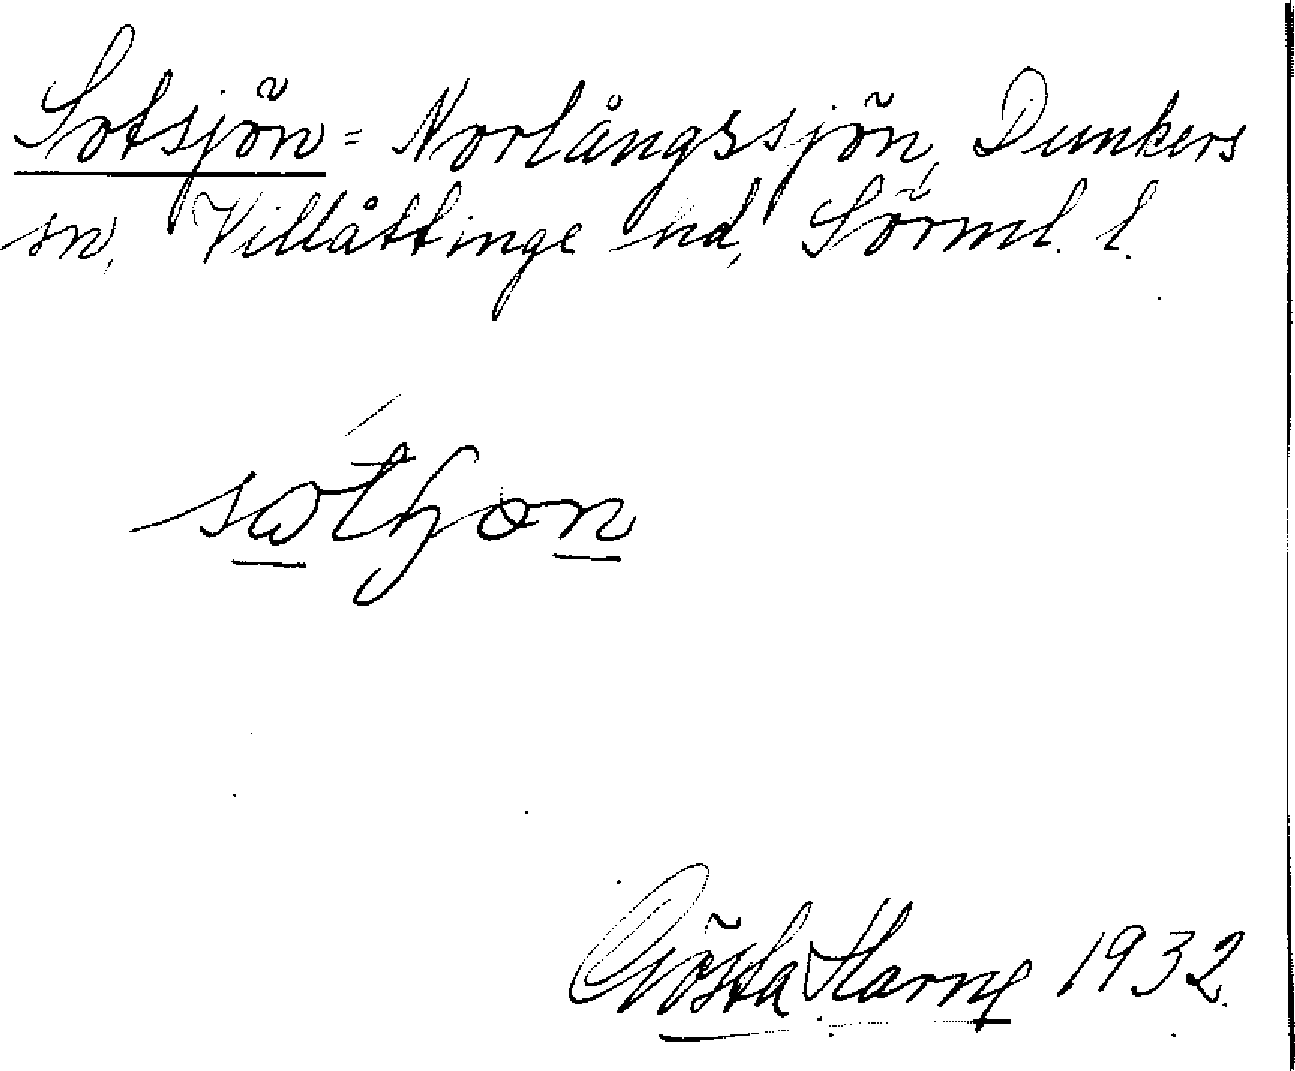 Sotsjön = Norlångssjön, Dunkers
sn, Villåttinge hd, Sörml. l.
Gösta Harne 1932.